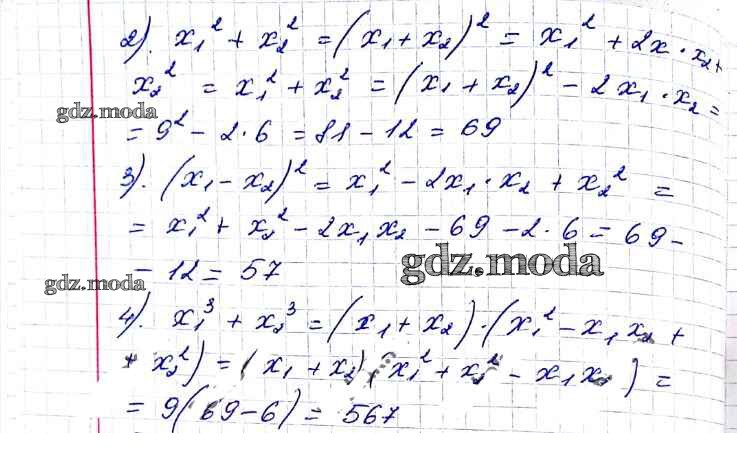 2). x₁² + x₂² = (x₁ + x₂)² = x₁² + 2x · x₂ +
x₂² = x₁² + x₂² = (x₁ + x₂)² − 2x₁ · x₂ =
gdz.moda
= 9² − 2·6 = 81 − 12 = 69
3). (x₁ − x₂)² = x₁² − 2x₁ · x₂ + x₂² =
= x₁² + x₂² − 2x₁x₂ − 69 − 2·6 = 69 −
− 12 = 57
gdz.moda
gdz.moda
4). x₁³ + x₂³ = (x₁ + x₂)·(x₁² − x₁x₂ +
+ x₂²) = (x₁ + x₂)(x₁² + x₂² − x₁x₂) =
= 9(69−6) = 567